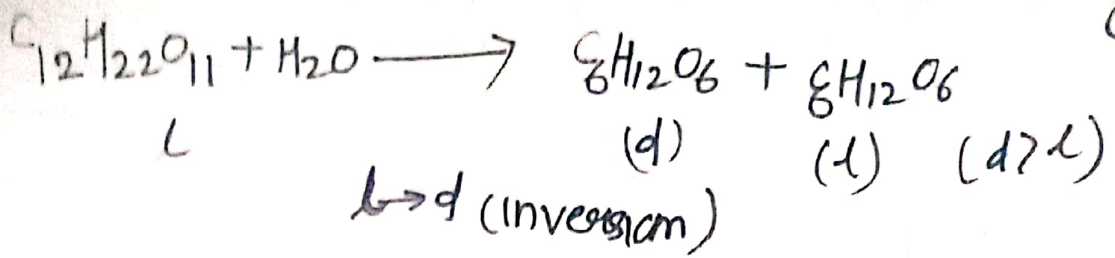 C12H22O11 + H2O ⟶ C6H12O6 + C6H12O6
l (d) (l) (d>l)
l→d (inversion)